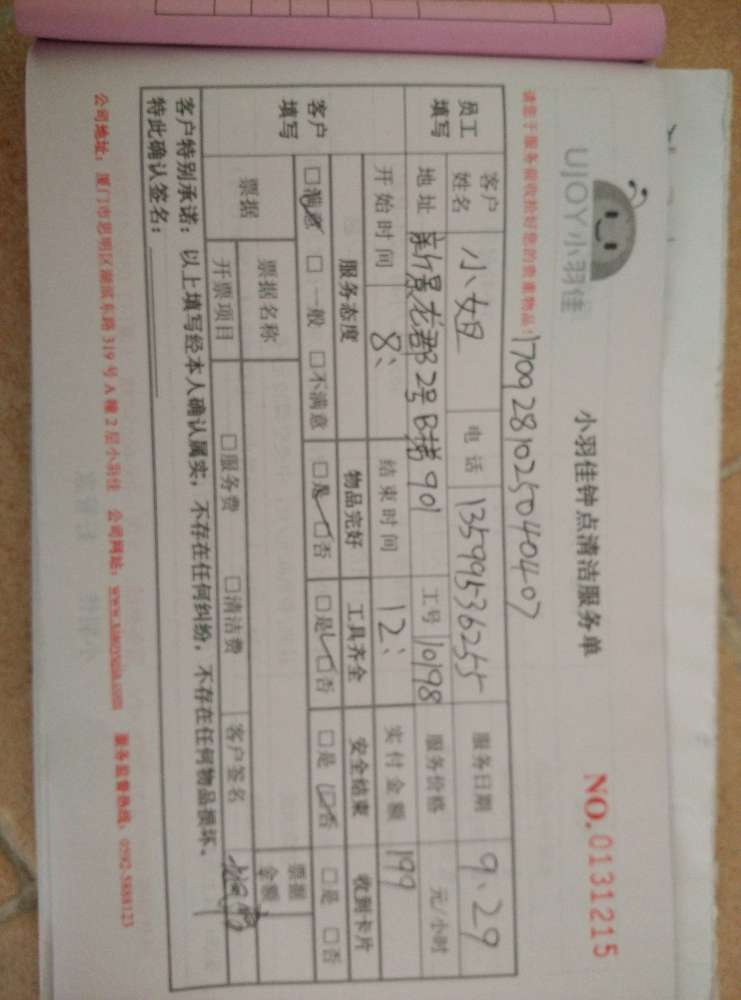 UJOY小羽佳
小羽佳钟点清洁服务单
NO.0131215
请您于服务前收拾好您的贵重物品!
1709281025040407
员工填写
客户姓名 小妲 电话 13599536255 服务日期 9、29
地址 新景龙郡B2号B梯901 工号 10198 服务价格 元/小时
开始时间 8: 结束时间 12: 实付金额 199
客户填写
服务态度 物品完好 工具齐全 安全结束 收到卡片
□满意 □一般 □不满意 □是 □否 □是 □否 □是 □否 □是 □否
票据 票据名称 票据金额
开票项目 □服务费 □清洁费 客户签名
客户特别承诺:以上填写经本人确认属实,不存在任何纠纷,不存在任何物品损坏。
特此确认签名:
公司地址:厦门市思明区湖滨东路319号A幢2层小羽佳 公司网站:www.xiaoyujia.com 服务监督热线:0592-5888123